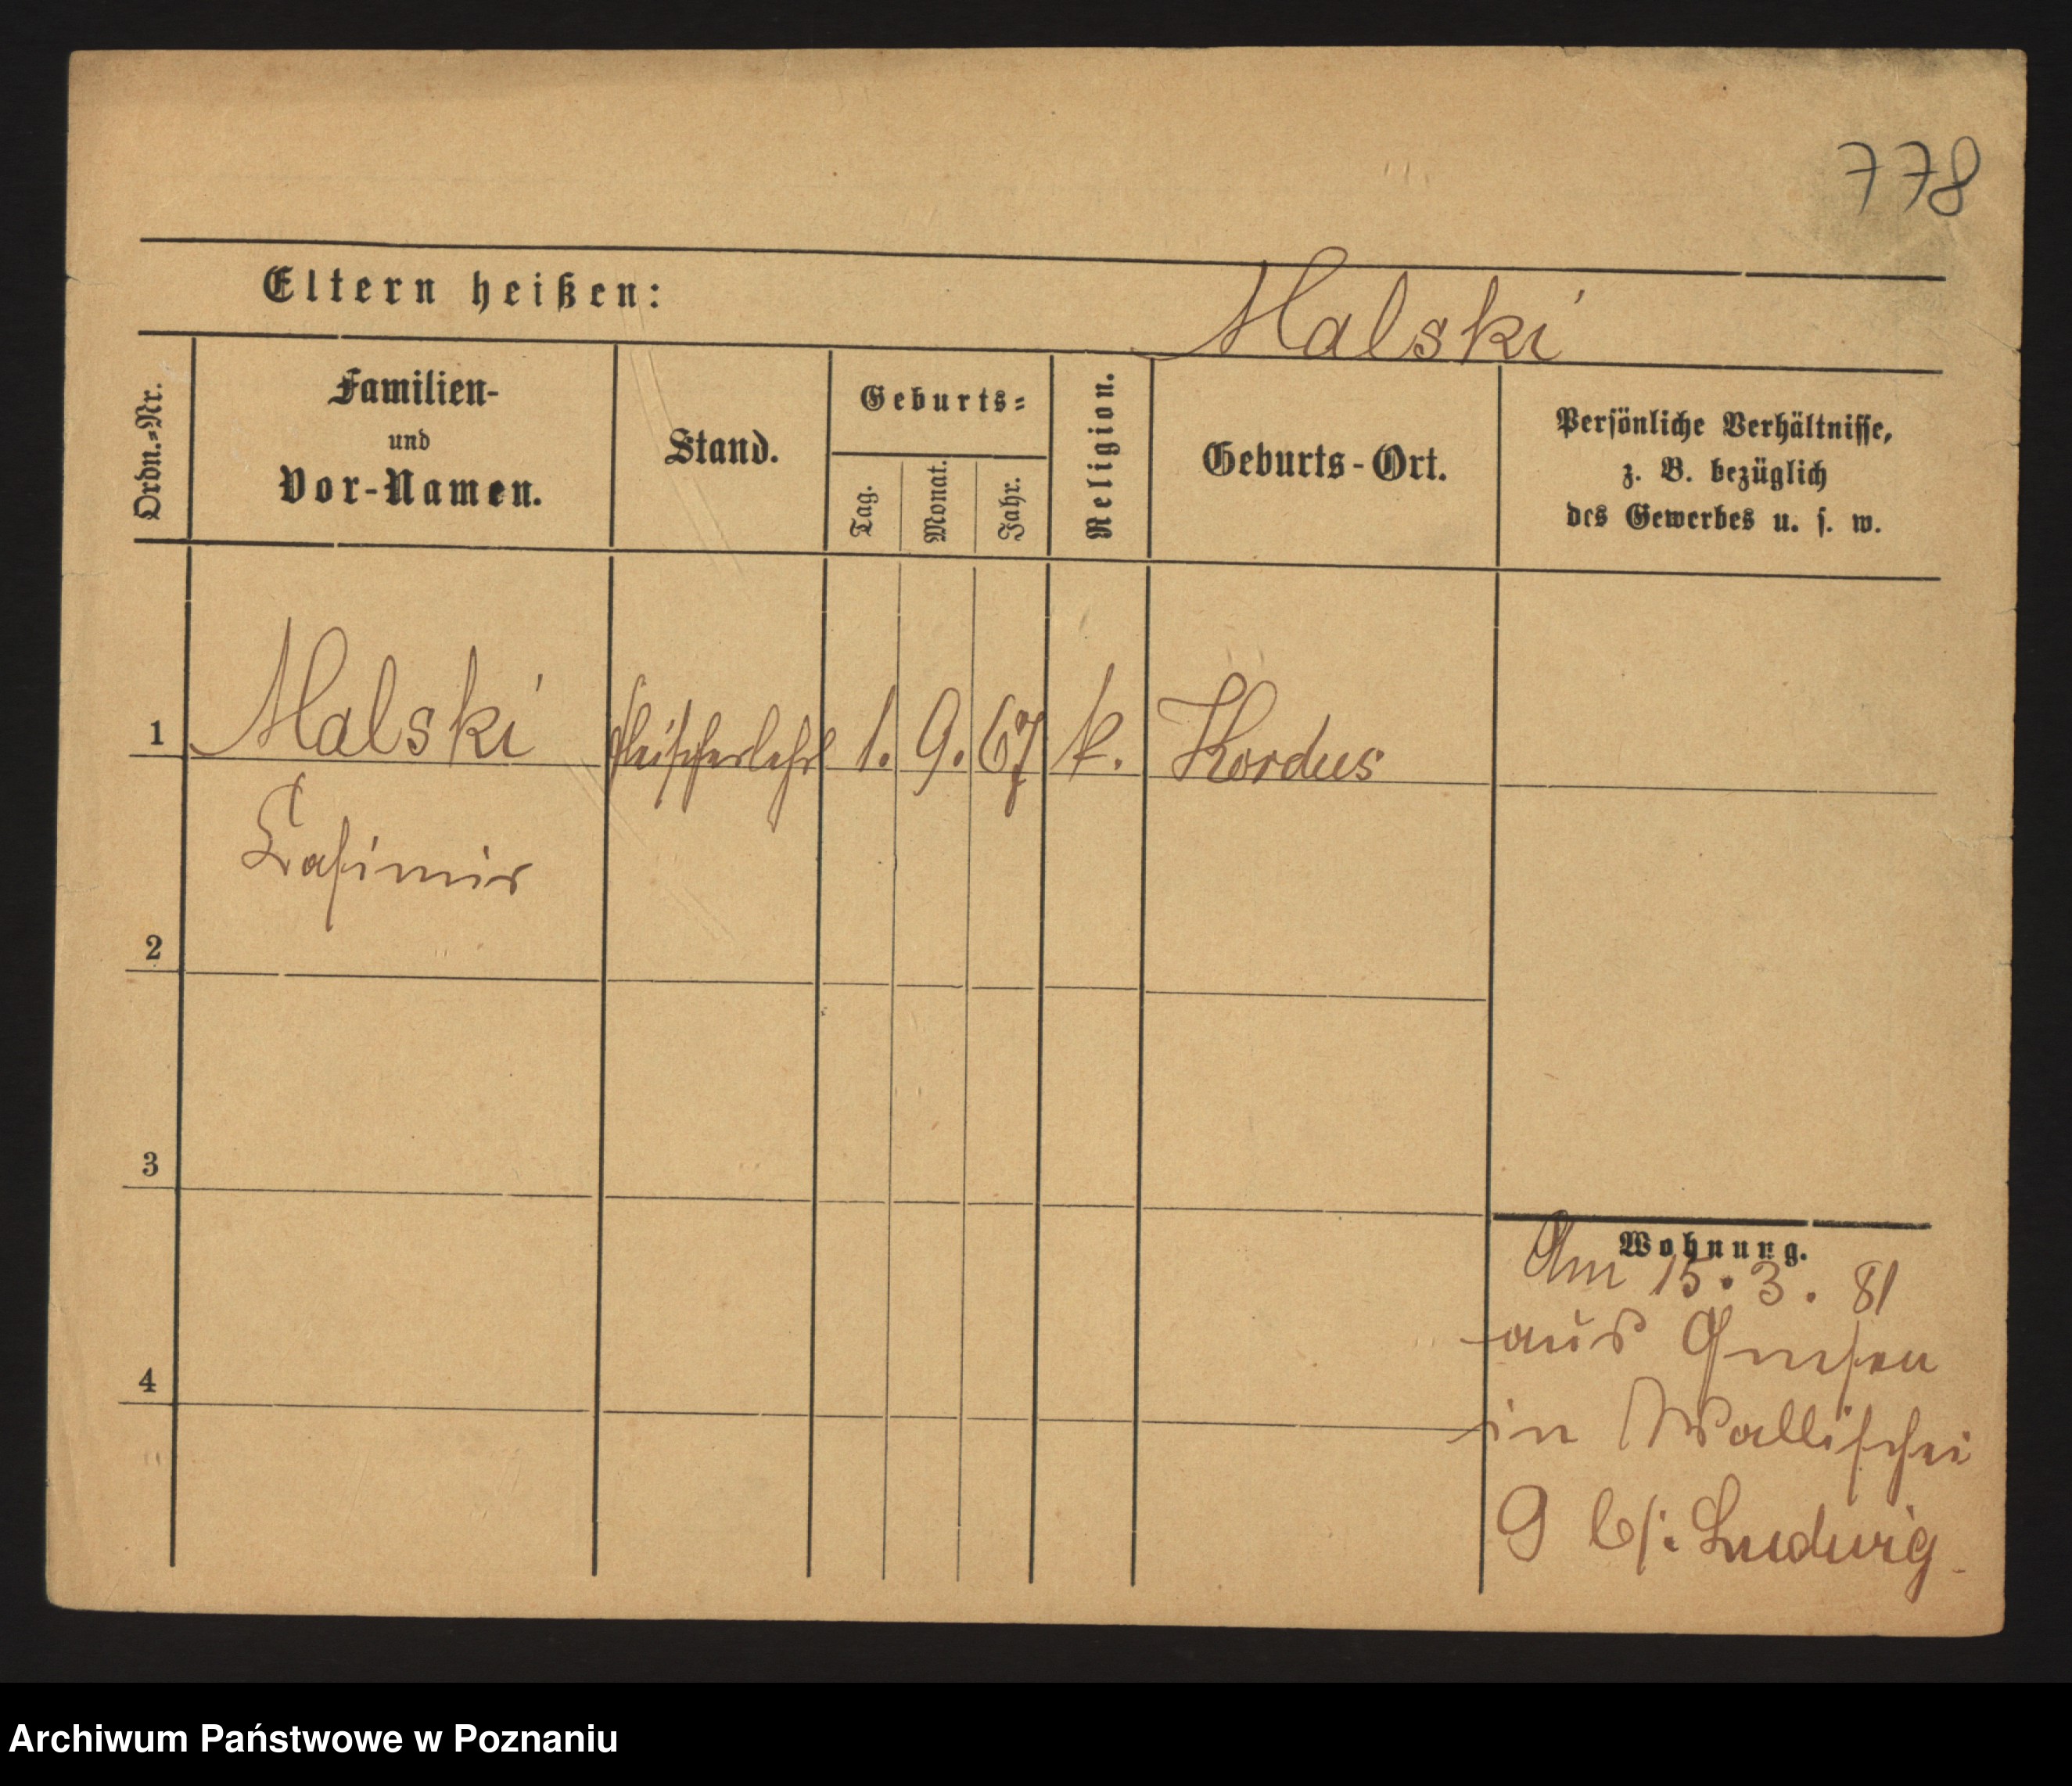 778
Eltern heißen: Malski
Ordn.=Nr.
Familien-
und
Vor-Namen.
Stand.
Geburts=
Tag.
Monat.
Jahr.
Religion.
Geburts-Ort.
Persönliche Verhältnisse,
z. B. bezüglich
des Gewerbes u. s. w.
1 Malski Fleischerlehrl 1. 9. 67 k. Kordus
Casimir
2
3
4
Wohnung.
Am 15. 3. 81
aus Gnesen
in Wallischei
9 b/: Ludwig
Archiwum Państwowe w Poznaniu